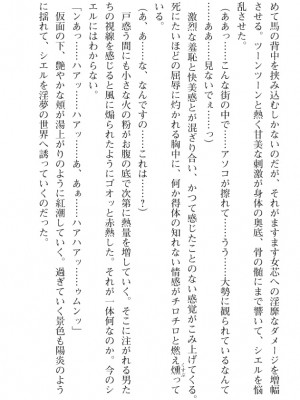 めて馬の背中を挟み込むしかないのだが、それがますます女芯への淫靡なダメージを増幅
させる。ツーンツーンと熱く甘美な刺激が身体の奥底、骨の髄にまで響いて、シエルを悩
乱させた。
（あっ……こんな街の中で……アソコが擦れて……うう……大勢に観られているなんて
……ああ……見ないでぇ……っ）
激烈な羞恥と快美感とが混ざり合い、かつて感じたことのない感覚がこみ上げてくる。
死にたいほどの屈辱に灼かれる胸中に、何か得体の知れない情感がチロチロと燃え燻って
いる。
（あ、あ……な、なんですの……これは……？）
戸惑う間にも小さな火の粉がお腹の底で次第に熱量を増していく。そこに注がれる男た
ちの視線を感じると風に煽られたようにゴオッと赤熱した。それが一体何なのか。今のシ
エルにはわからない。
「ンあっ……ハアッ……ハァ……あ、あぁ……ハアハアッ……ゥムンッ」
仮面の下、艶やかな頬が湯上がりのように紅潮していく。過ぎていく景色も陽炎のよう
に揺れて、シエルを淫夢の世界へ誘っていくのだった。